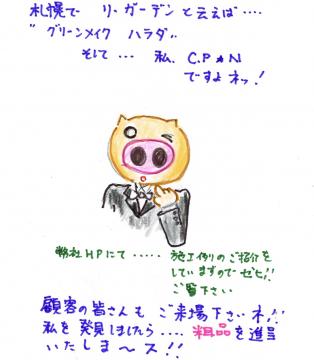 札幌で リ・ガーデンと云えば‥‥
"グリーンメイク ハラダ"
そして‥‥ 私、C.P★N
ですよネッ!
弊社HPにて‥‥‥ 施工例のご紹介を
していますのでゼヒ!!
ご覧下さい
顧客の皆さんも ご来場下さいネ!!
私を発見しましたら‥‥ 粗品を進呈
いたしま〜ス!!